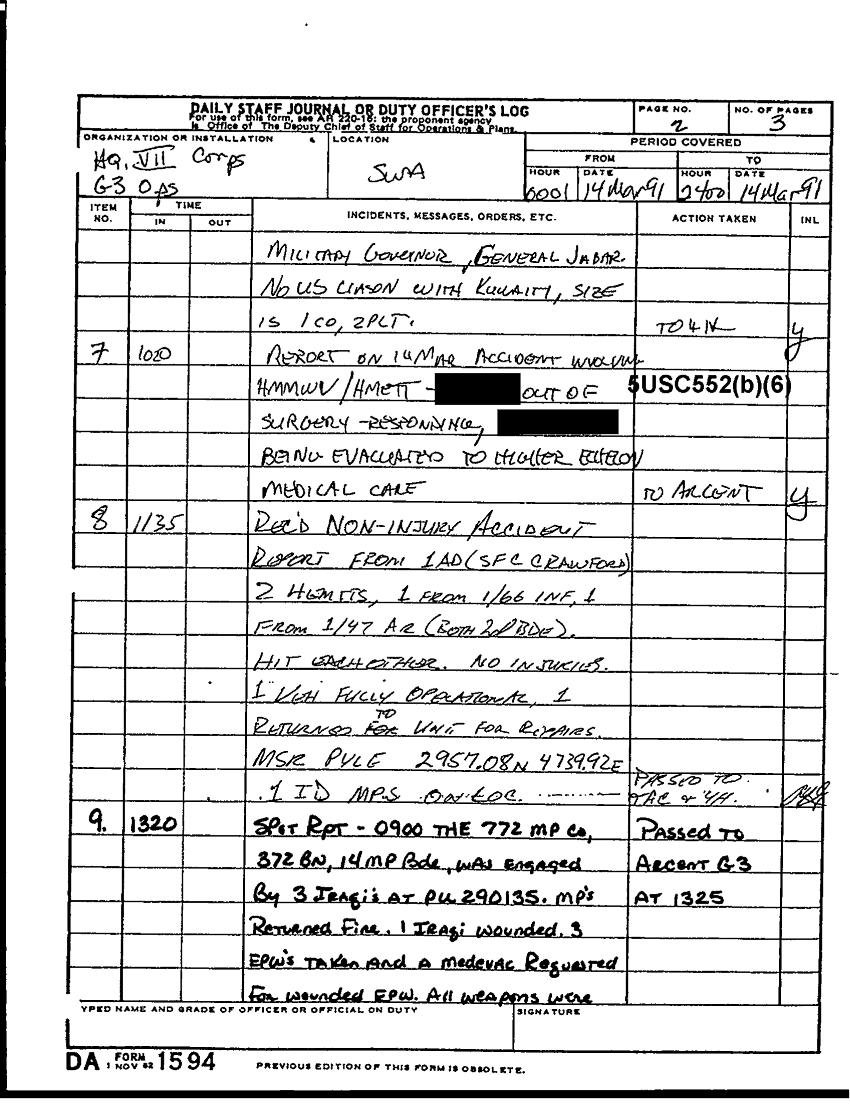 DAILY STAFF JOURNAL OR DUTY OFFICER'S LOG
For use of this form, see AR 220-15; the proponent agency
is Office of The Deputy Chief of Staff for Operations & Plans.
PAGE NO.
2
NO. OF PAGES
3
ORGANIZATION OR INSTALLATION
HQ, VII Corps
G-3 OPS
LOCATION
SWA
PERIOD COVERED
FROM
TO
HOUR
DATE
HOUR
DATE
0001
14 Mar 91
2400
14 Mar 91
ITEM NO.
TIME
IN
OUT
INCIDENTS, MESSAGES, ORDERS, ETC.
ACTION TAKEN
INL
MILITARY GOVERNOR, GENERAL JABAR.
NO US LIASON WITH KUWAITI, SIZE
IS 1 CO, 2 PLT.
7 1020 REPORT ON 14 MAR ACCIDENT INVOLVING
HMMWV/HMETT - OUT OF 5USC552(b)(6)
SURGERY - RESPONDING,
BEING EVACUATED TO HIGHER ECHELON
MEDICAL CARE TO ARCENT
8 1135 REC'D NON-INJURY ACCIDENT
REPORT FROM 1AD (SFC CRAWFORD)
2 HEMTTS, 1 FROM 1/66 INF, 1
FROM 1/47 AR (BOTH 2d BDE).
HIT EACH OTHER. NO INJURIES.
1 VEH FULLY OPERATIONAL, 1
RETURNED TO UNIT FOR REPAIRS.
MSR PYLE 2957.08N 4739.92E
PASSED TO
1 ID MPS ON LOC.
9. 1320 SPOT RPT - 0900 THE 772 MP Co, Passed to
372 BN, 14 MP Bde, was engaged ARCENT G3
By 3 Iraqi's AT PU 290135. MP's AT 1325
Returned Fire. 1 Iraqi wounded. 3
EPW's Taken And A medevac Requested
For wounded EPW. All weapons were
TYPED NAME AND GRADE OF OFFICER OR OFFICIAL ON DUTY
SIGNATURE
DA FORM 1 NOV 62 1594
PREVIOUS EDITION OF THIS FORM IS OBSOLETE.